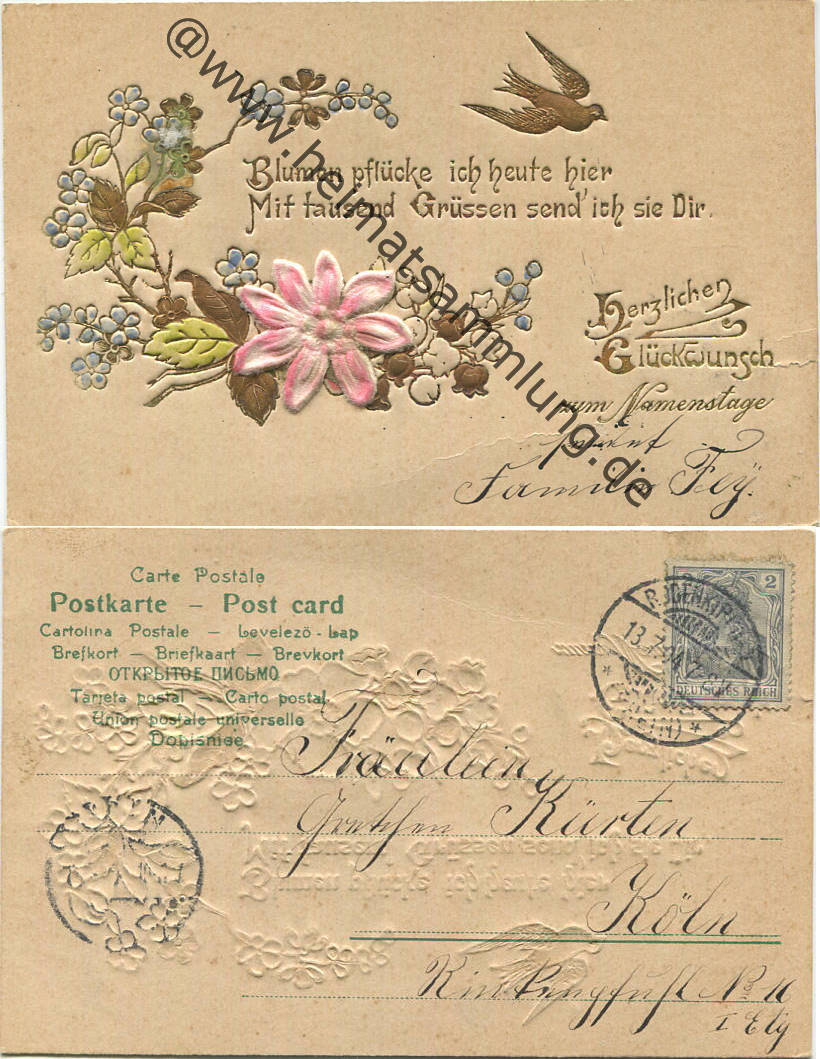 @www.heimatsammlung.de
Blumen pflücke ich heute hier
Mit tausend Grüssen send' ich sie Dir.
Herzlichen
Glückwunsch
zum Namenstage
Familie Fey.
Carte Postale
Postkarte – Post card
Cartolina Postale – Levelező-Lap
Brefkort – Briefkaart – Brevkort
ОТКРЫТОЕ ПИСЬМО
Tarjeta postal – Carto postal
Union postale universelle
Dopisnice
2
DEUTSCHES REICH
Fräulein
Gretchen Küerten
Köln
No 16
I Etg